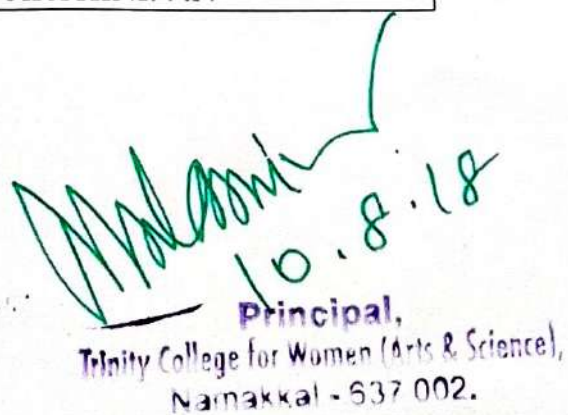 10.8.18
Principal,
Trinity College for Women (Arts & Science),
Namakkal - 637 002.